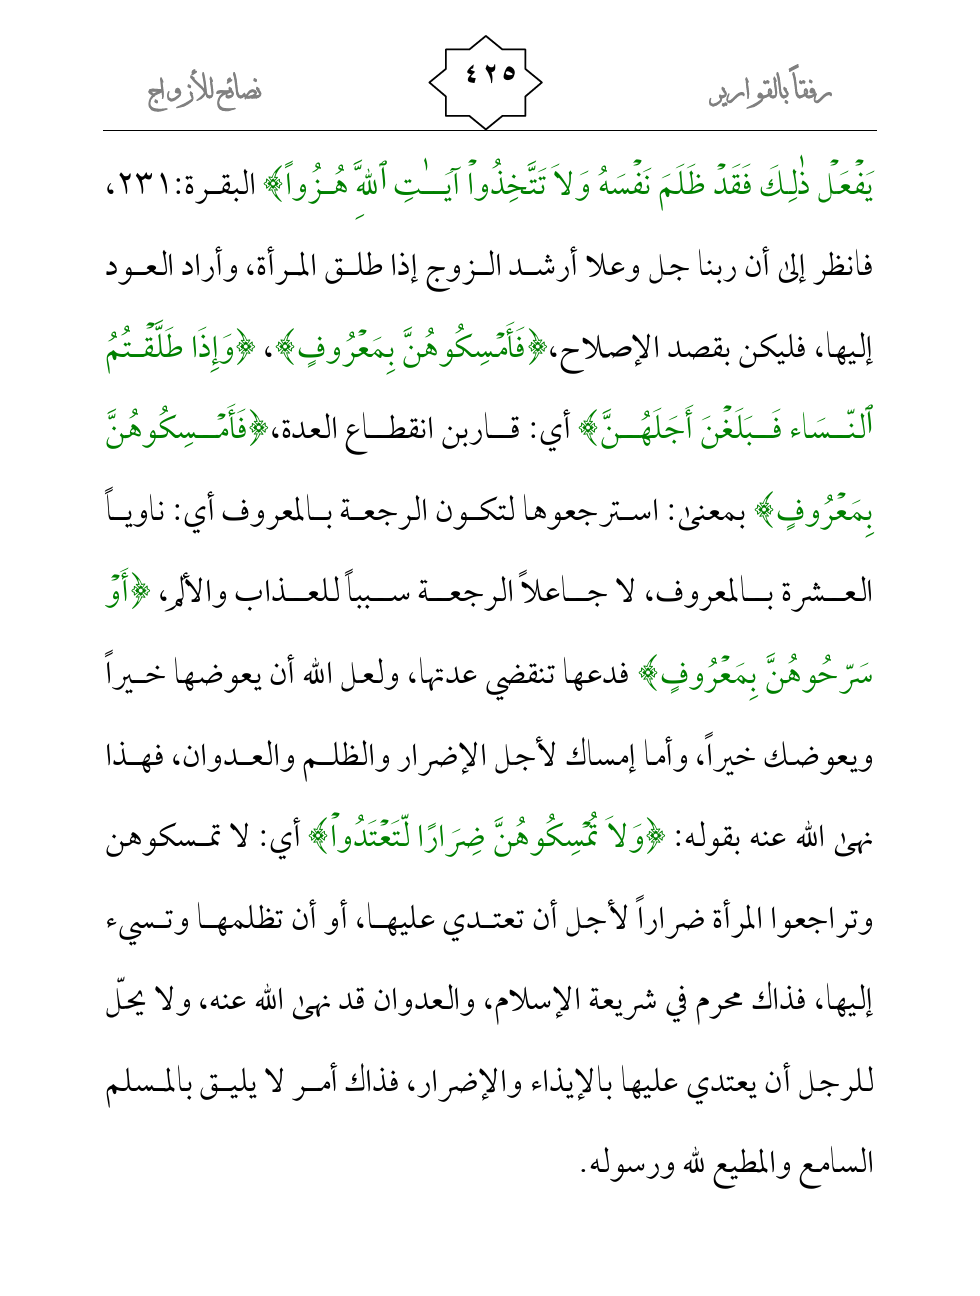 رفقاً بالقوارير
٤٢٥
نصائح للأزواج
يَفْعَلْ ذٰلِكَ فَقَدْ ظَلَمَ نَفْسَهُ وَلاَ تَتَّخِذُواْ آيَـٰتِ ٱللَّهِ هُـزُواً﴾ البقـرة:٢٣١،
فانظر إلىٰ أن ربنا جل وعلا أرشـد الـزوج إذا طلـق المـرأة، وأراد العـود
إليها، فليكن بقصد الإصلاح،﴿فَأَمْسِكُوهُنَّ بِمَعْرُوفٍ﴾، ﴿وَإِذَا طَلَّقْـتُمُ
ٱلنّـسَاء فَـبَلَغْنَ أَجَلَهُـنَّ﴾ أي: قـاربن انقطـاع العدة،﴿فَأَمْـسِكُوهُنَّ
بِمَعْرُوفٍ﴾ بمعنىٰ: اسـترجعوها لتكـون الرجعـة بـالمعروف أي: ناويـاً
العـشرة بـالمعروف، لا جـاعلاً الرجعـة سـبباً للعـذاب والألم، ﴿أَوْ
سَرّحُوهُنَّ بِمَعْرُوفٍ﴾ فدعها تنقضي عدتها، ولعل الله أن يعوضها خـيراً
ويعوضك خيراً، وأما إمساك لأجل الإضرار والظلـم والعـدوان، فهـذا
نهىٰ الله عنه بقوله: ﴿وَلاَ تُمْسِكُوهُنَّ ضِرَارًا لّتَعْتَدُواْ﴾ أي: لا تمـسكوهن
وتراجعوا المرأة ضراراً لأجل أن تعتـدي عليهـا، أو أن تظلمهـا وتـسيء
إليها، فذاك محرم في شريعة الإسلام، والعدوان قد نهىٰ الله عنه، ولا يحلّ
للرجل أن يعتدي عليها بالإيذاء والإضرار، فذاك أمـر لا يليـق بالمـسلم
السامع والمطيع لله ورسوله.